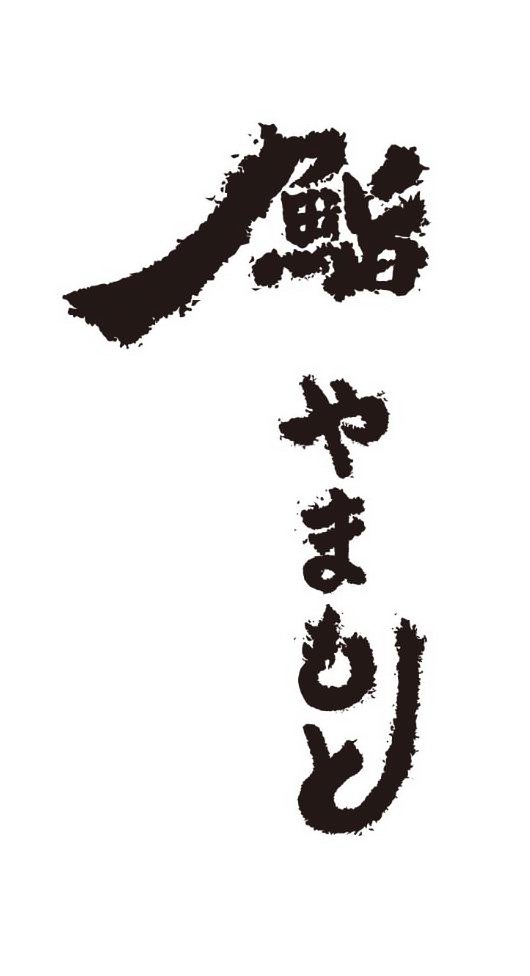 鮨
やまもと